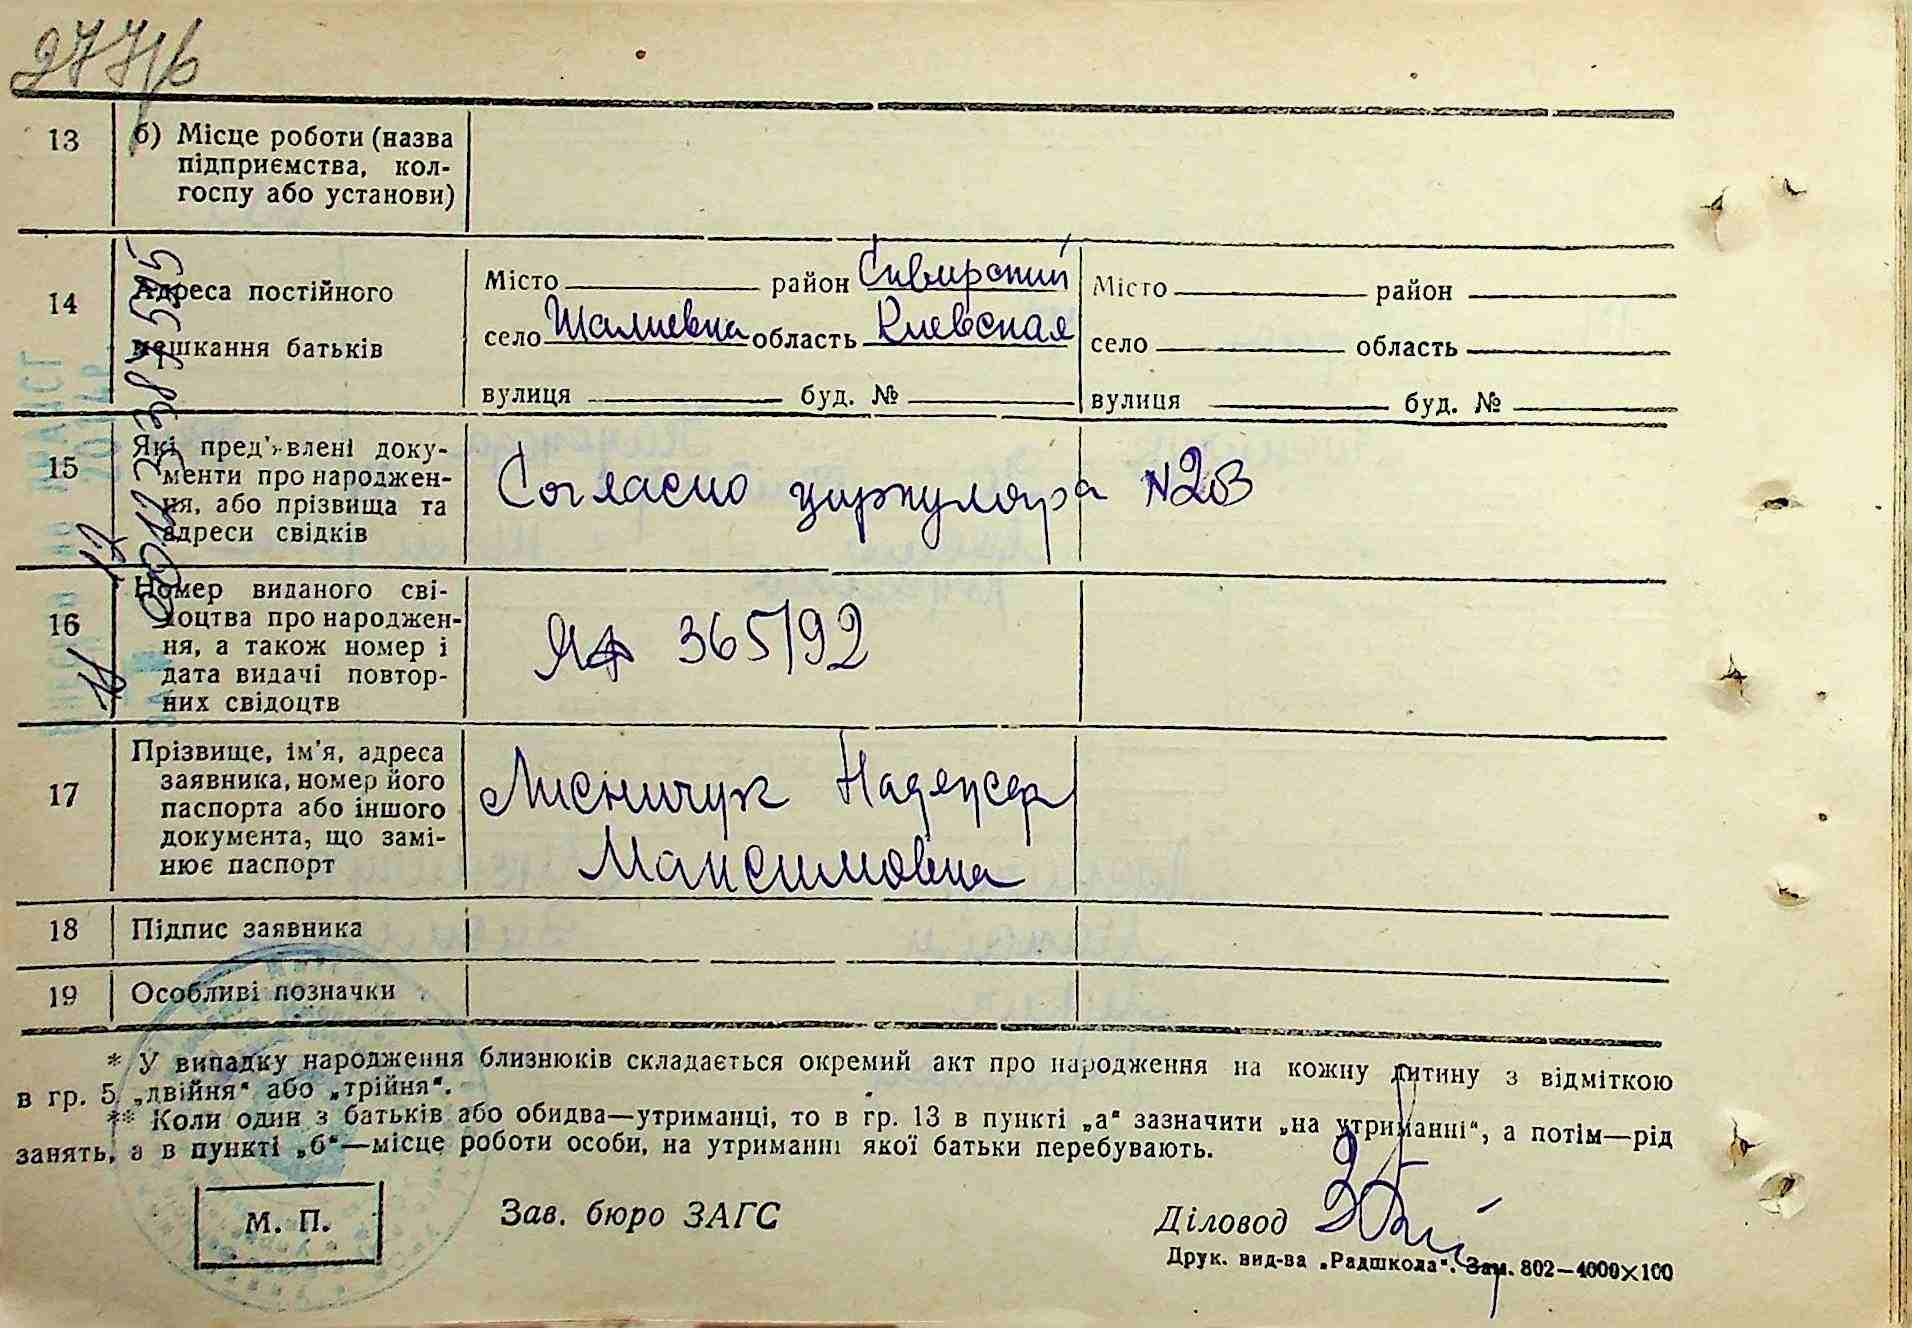 277/б
13 б) Місце роботи (назва
підприємства, кол-
госпу або установи)
14 Адреса постійного
мешкання батьків
Місто район Сквирский
село Шалиевка область Киевская
вулиця буд. №
Місто район
село область
вулиця буд. №
15 Які пред'явлені доку-
менти про народжен-
ня, або прізвища та
адреси свідків
Согласно циркуляра №203
16 Номер виданого сві-
доцтва про народжен-
ня, а також номер і
дата видачі повтор-
них свідоцтв
ЯФ 365192
17 Прізвище, ім'я, адреса
заявника, номер його
паспорта або іншого
документа, що замі-
нює паспорт
Лисничук Надежда
Максимовна
18 Підпис заявника
19 Особливі позначки
* У випадку народження близнюків складається окремий акт про народження на кожну дитину з відміткою
в гр. 5 „двійня“ або „трійня“.
** Коли один з батьків або обидва—утриманці, то в гр. 13 в пункті „а“ зазначити „на утриманні“, а потім—рід
занять, а в пункті „б“—місце роботи особи, на утриманні якої батьки перебувають.
М. П.
Зав. бюро ЗАГС
Діловод
Друк. вид-ва „Радшкола“. Зам. 802—4000×100